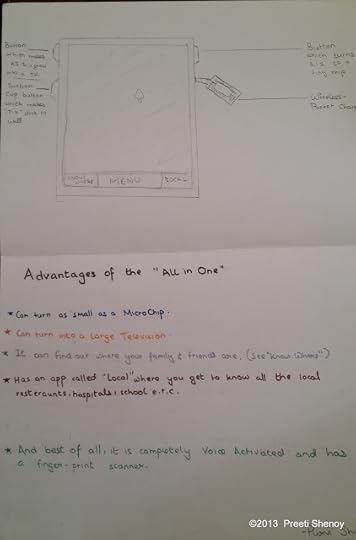 Button
which makes
Suction
Cup button
which makes
stick to
wall
Button
which turns
into a
tiny chip
Wireless-
Pocket Char
MENU
LOCAL
Advantages of the "All in One"
★ Can turn as small as a MicroChip.
★ Can turn into a Large Television.
★ It can find out where your family & friends are. (See "know where")
★ Has an app called "Local" where you get to know all the local
resteraunts, hospitals, school e.t.c.
★ And best of all, it is completely Voice Activated and has
a finger-print scanner.
©2013 Preeti Shenoy